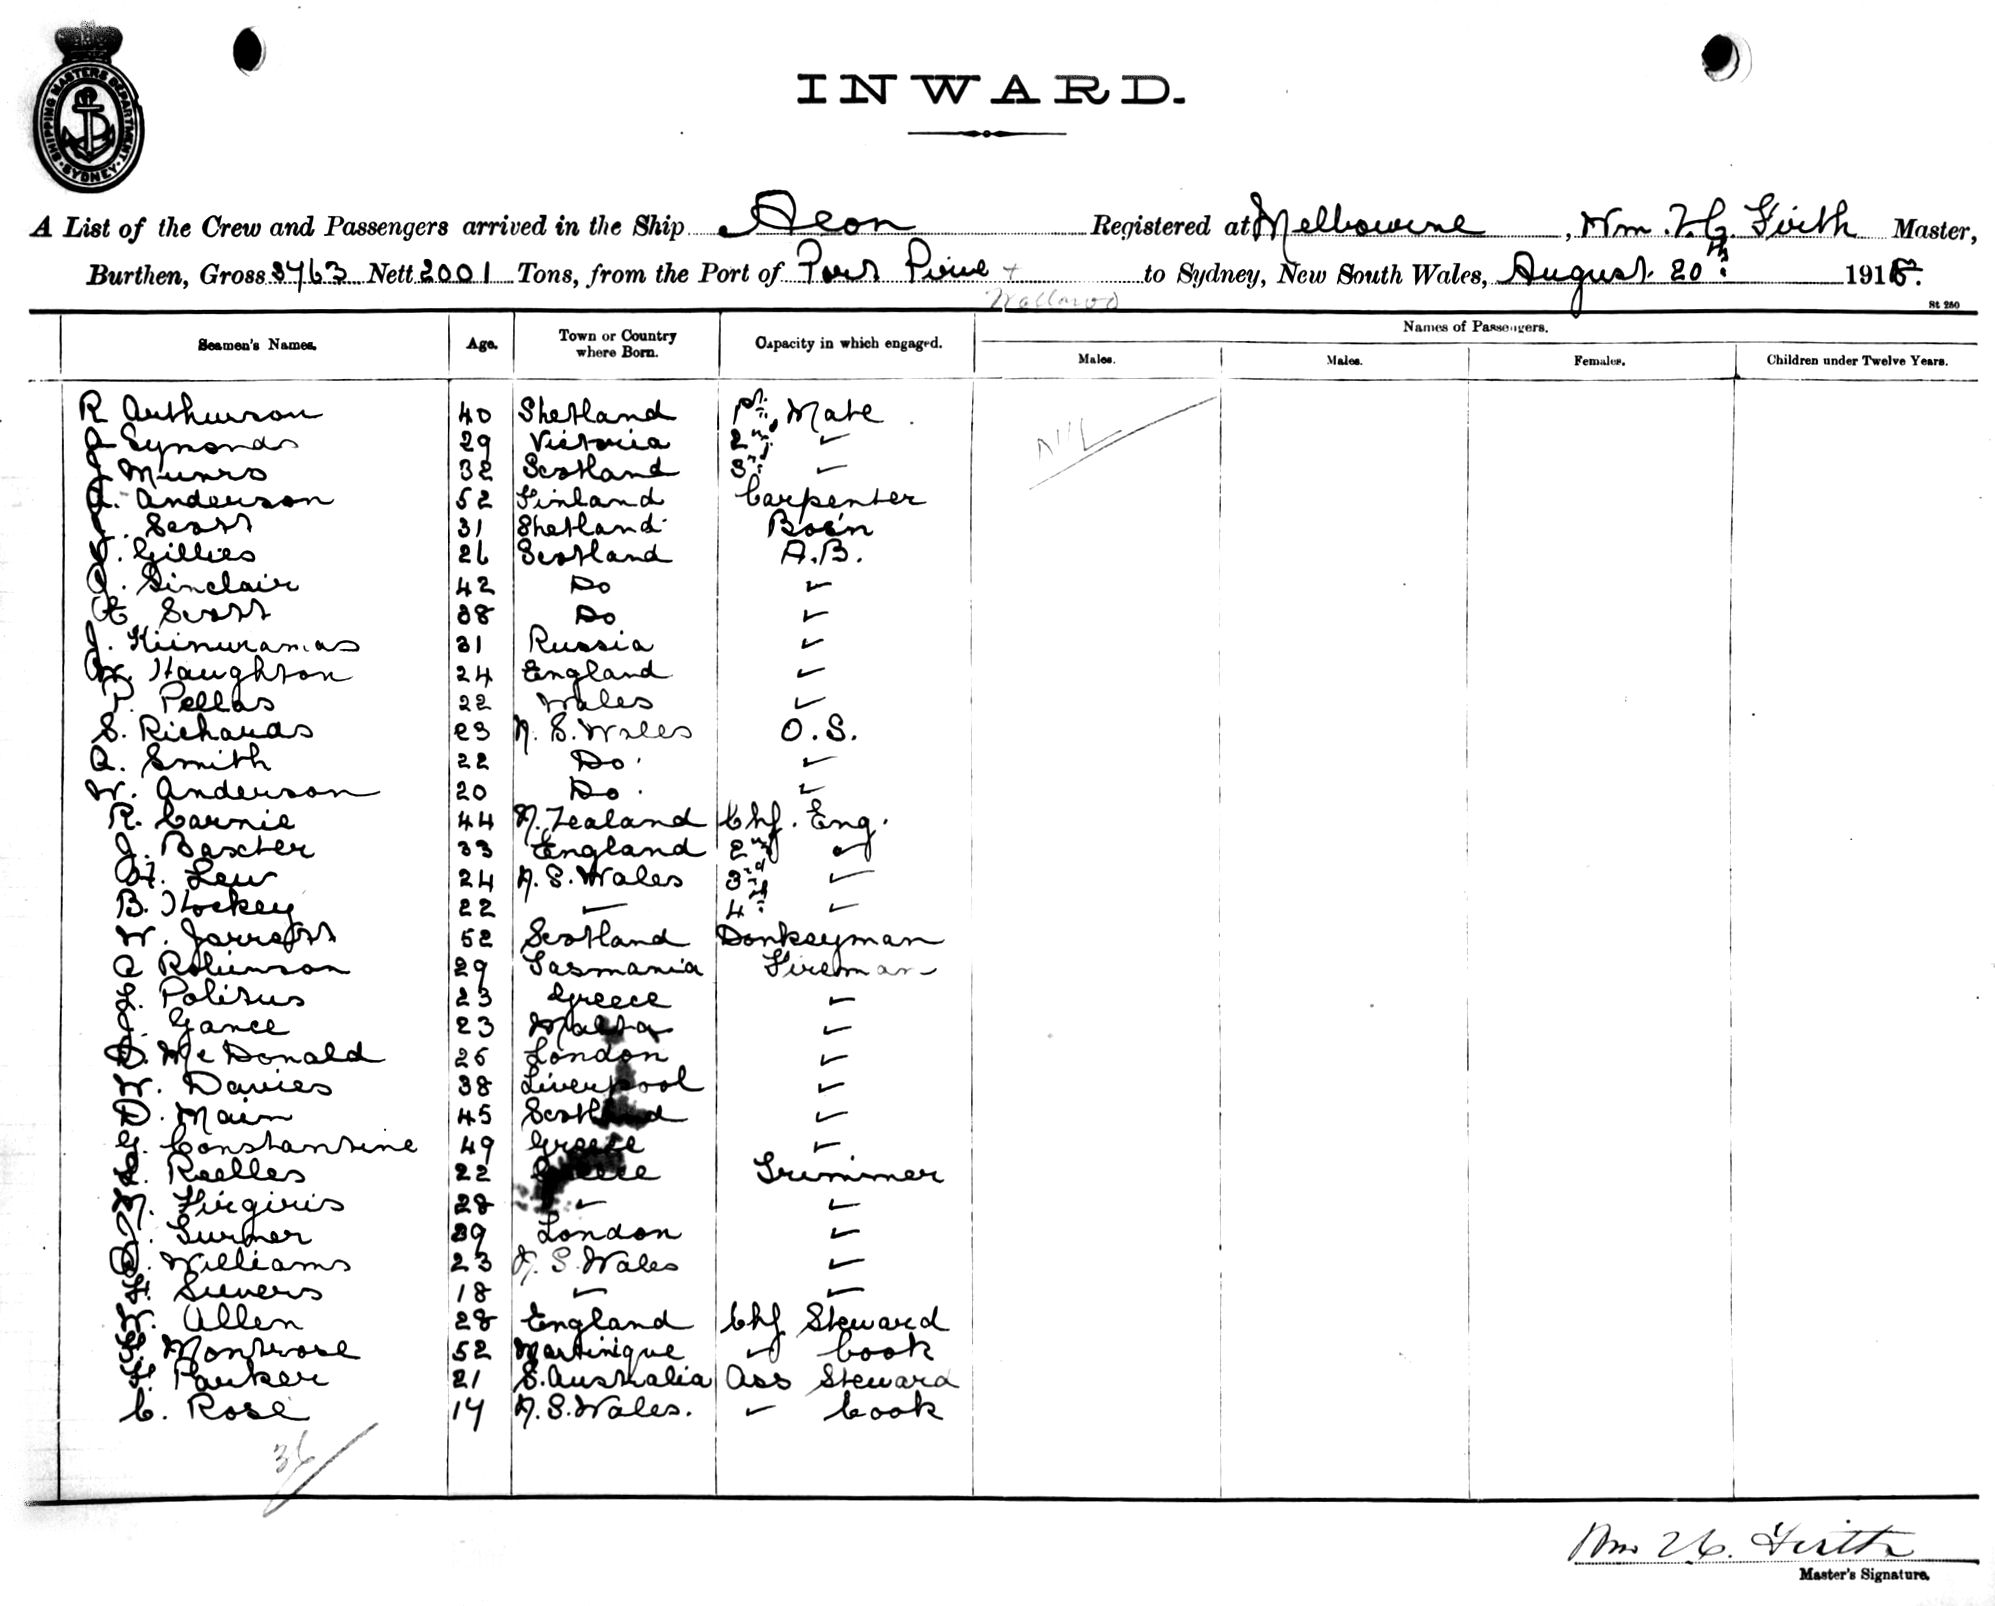 SHIPPING MASTERS DEPARTMENT. SYDNEY
INWARD.
A List of the Crew and Passengers arrived in the Ship Aeon Registered at Melbourne, Wm. H. G. Firth Master,
Burthen, Gross 3763 Nett 2001 Tons, from the Port of Port Pirie + to Sydney, New South Wales, August 20th 1915.
Wallaroo
St 280
Seamen's Names. Age. Town or Country where Born. Capacity in which engaged. Names of Passengers.
Males. Males. Females. Children under Twelve Years.
R Arthurson 40 Shetland 1st Mate
J Symonds 29 Victoria 2nd "
J Munro 32 Scotland 3rd "
A. Anderson 52 Finland Carpenter
J. Scott 31 Shetland Bos'n
J. Gillies 26 Scotland A.B.
A. Sinclair 42 Do "
A Scott 38 Do "
J. 31 Russia "
W. Haughton 24 England "
P. Pellas 22 Wales "
S. Richards 23 N. S. Wales O. S.
A. Smith 22 Do "
W. Anderson 20 Do "
R. Carnie 44 N. Zealand Chf. Eng.
J. Baxter 33 England 2nd "
H. Lew 24 N. S. Wales 3rd "
B. Hockey 22 " 4th "
W. Jarratt 52 Scotland Donkeyman
A Robinson 29 Tasmania Fireman
L. Politus 23 Greece "
J. Gance 23 Malta "
D. McDonald 26 London "
W. Davies 38 Liverpool "
D. Main 45 Scotland "
G. Constantine 49 Greece "
Roelles 22 Greece Trimmer
M. Firgiris 28 " "
J. Turner 39 London "
D. Williams 23 N. S. Wales "
H. Sievers 18 " "
W. Allen 28 England Chf Steward
Montrose 52 Martinique " Cook
H. Parker 21 S. Australia Ass Steward
C. Rose 17 N. S. Wales. " Cook
Nil
36
Wm H G. Firth
Master's Signature.